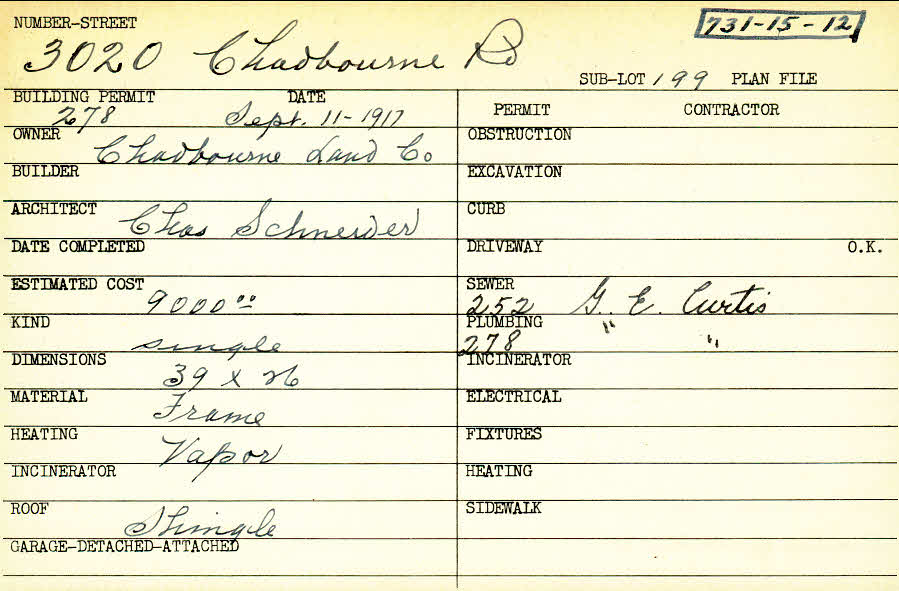 NUMBER-STREET
731-15-12
3020 Chadbourne Rd
SUB-LOT 199 PLAN FILE
BUILDING PERMIT DATE
278 Sept. 11-1917
PERMIT CONTRACTOR
OWNER
Chadbourne Land Co
OBSTRUCTION
BUILDER
EXCAVATION
ARCHITECT
Chas Schneider
CURB
DATE COMPLETED
DRIVEWAY O.K.
ESTIMATED COST
9000⁰⁰
SEWER
252 G. E. Curtis
KIND
single
PLUMBING
278 " "
DIMENSIONS
39 x 26
INCINERATOR
MATERIAL
Frame
ELECTRICAL
HEATING
Vapor
FIXTURES
INCINERATOR
HEATING
ROOF
Shingle
SIDEWALK
GARAGE-DETACHED-ATTACHED